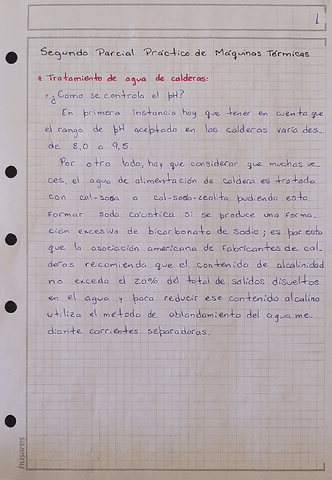 1
Segundo Parcial Práctico de Máquinas Térmicas
* Tratamiento de agua de calderas:
• ¿Como se controla el pH?
En primera instancia hay que tener en cuenta que
el rango de pH aceptado en las calderas varía des-
de 8,0 a 9,5.
Por otro lado, hay que considerar que muchas ve-
ces, el agua de alimentación de caldera es tratada
con cal-soda o cal-soda-zeolita pudiendo esto
formar soda caustica si se produce una forma-
ción excesiva de bicarbonato de sodio; es por esto
que la asociación americana de fabricantes de cal-
deras recomienda que el contenido de alcalinidad
no exceda el 20% del total de solidos disueltos
en el agua y para reducir ese contenido alcalino
utiliza el método de ablandamiento del agua me-
diante corrientes separadoras.
husares